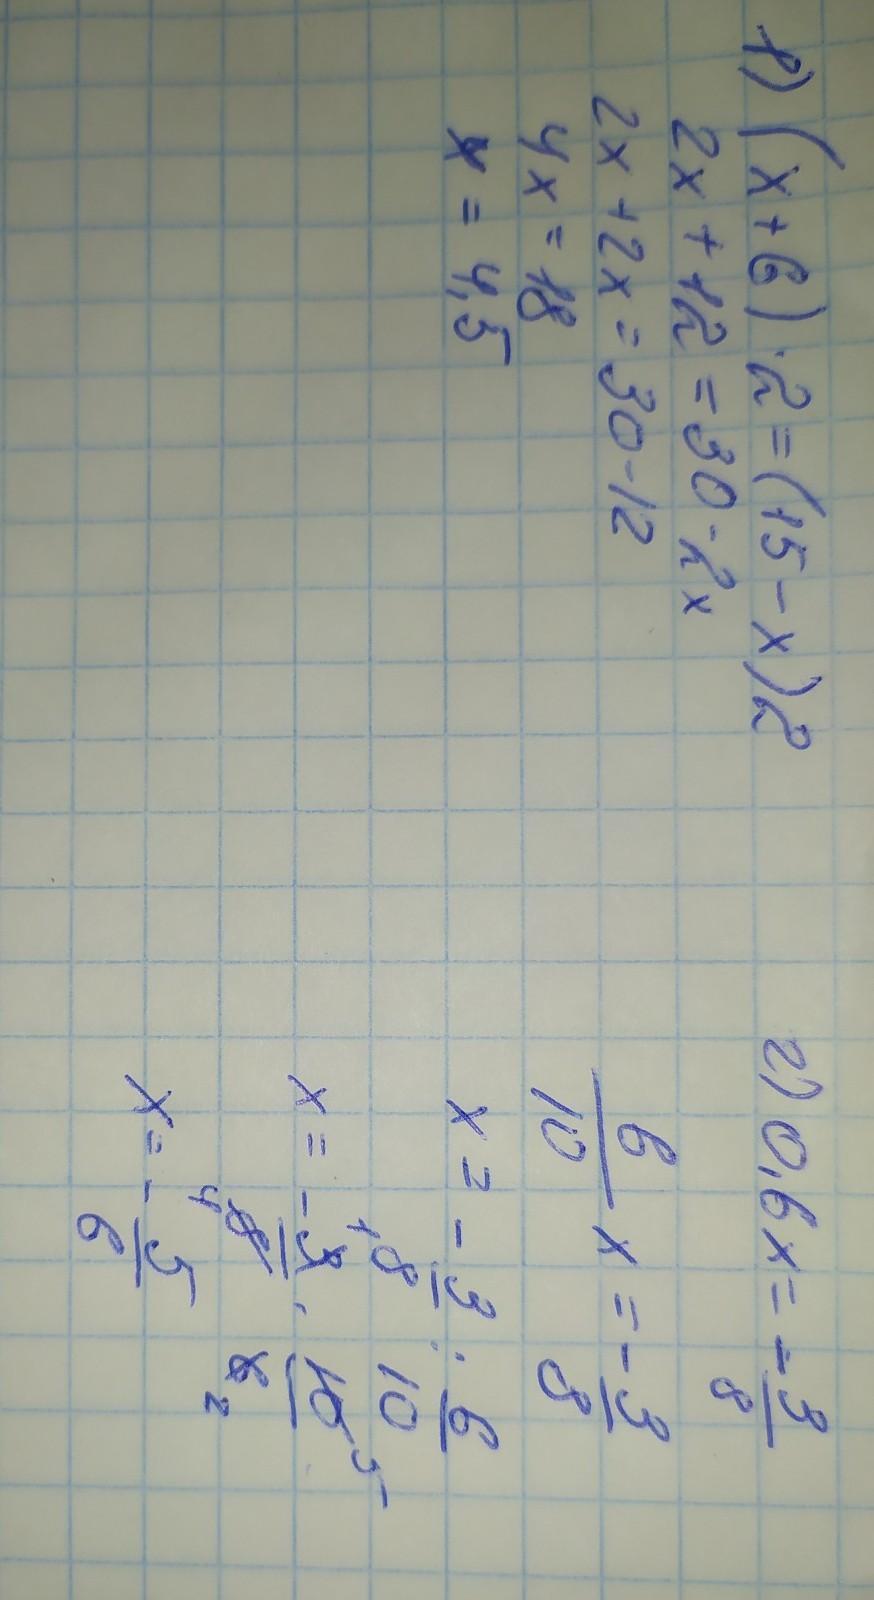 1) (x+6)·2=(15-x)2
2x+12=30-2x
2x+2x=30-12
4x=18
x=4,5
2) 0,6x=-3/8
6/10 x=-3/8
x=-3/8:6/10
x=-3/8·10/6
1
5
4
2
x=-5/6